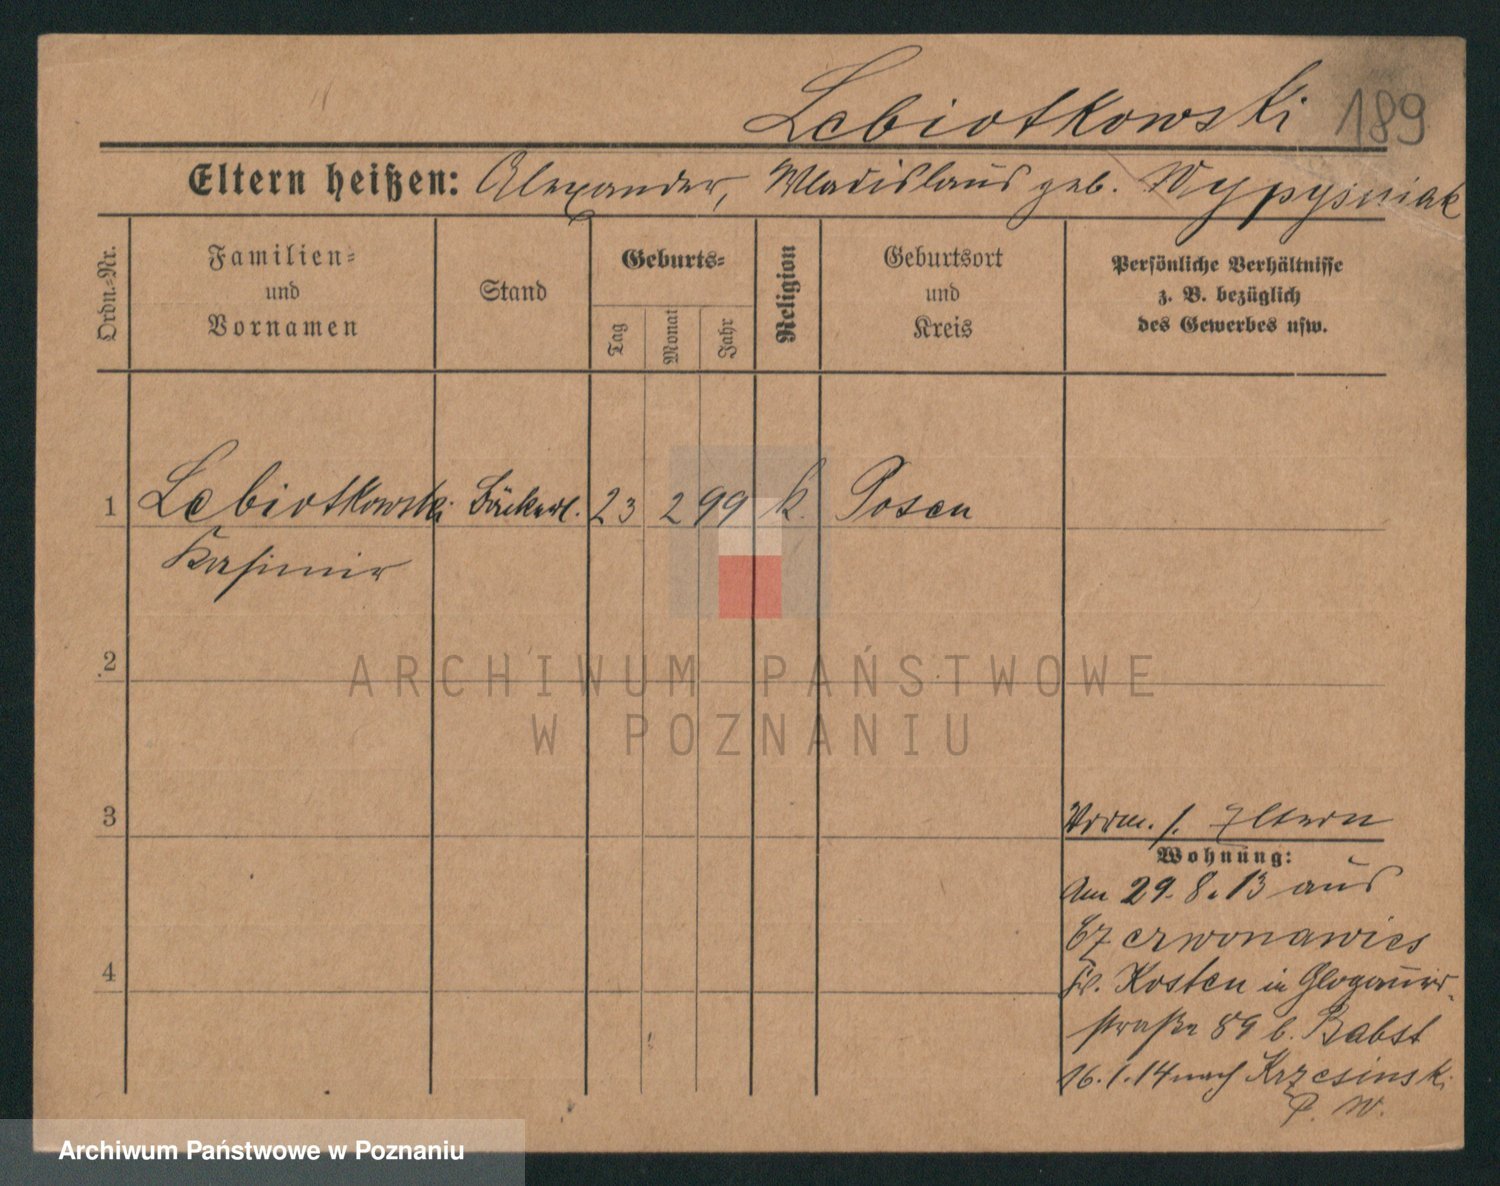 Lebiotkowski 189
Eltern heißen: Alexander, Wladislaus geb. Wypysniak
Ordn.-Nr.
Familien-
und
Vornamen
Stand
Geburts-
Tag
Monat
Jahr
Religion
Geburtsort
und
Kreis
Persönliche Verhältnisse
z. B. bezüglich
des Gewerbes usw.
1 Lebiotkowski Bäckerl. 23 2 99 k. Posen
Kasimir
2
ARCHIWUM PAŃSTWOWE
W POZNANIU
3
Vorm. s. Eltern
Wohnung:
Am 29.8.13 aus
Czerwonawies
Kr. Kosten in Glogauer-
straße 89 b. Babst
16.1.14 nach Krzesinski
P. W.
4
Archiwum Państwowe w Poznaniu